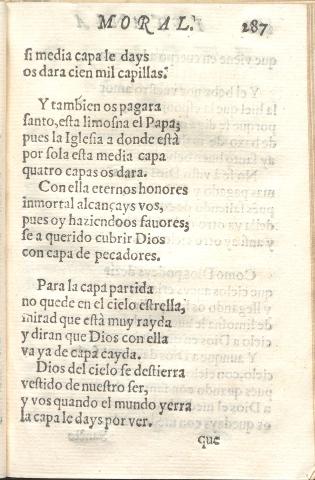 MORAL. 287
si media capa le days
os dara cien mil capillas.
Y tambien os pagara
santo, esta limosna el Papa;
pues la Iglesia a donde està
por sola esta media capa
quatro capas os dara.
Con ella eternos honores
inmortal alcançays vos,
pues oy haziendoos fauores;
se a querido cubrir Dios
con capa de pecadores.
Para la capa partida
no quede en el cielo estrella,
mirad que està muy rayda
y diran que Dios con ella
va ya de capa cayda.
Dios del cielo se destierra
vestido de nuestro ser,
y vos quando el mundo yerra
la capa le days por ver.
que